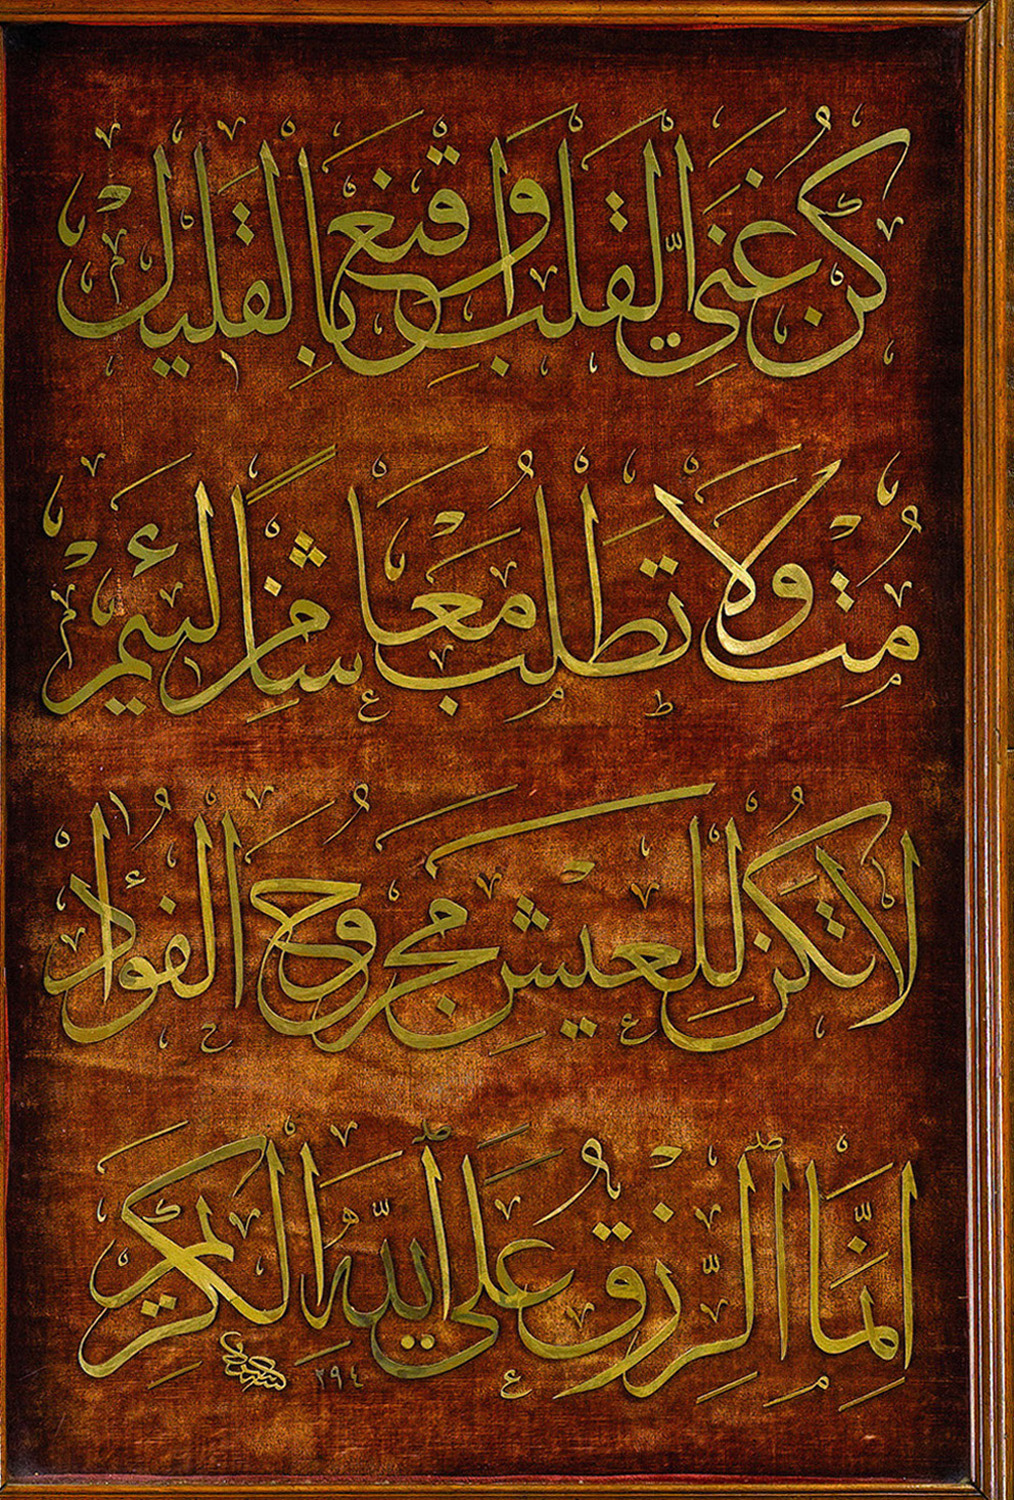 كُنْ غَنِيَّ القَلبِ وَاقنَع بِالقَليلْ
مُتْ وَلَا تَطلُب مَعَاشًا مِنْ لَئيمْ
لَا تَكُنْ لِلعَيشِ مَجْرُوحَ الفُؤادْ
اِنَّمَا الرِّزْقُ عَلَى اللّٰهِ الكَريمْ
٢٩٤